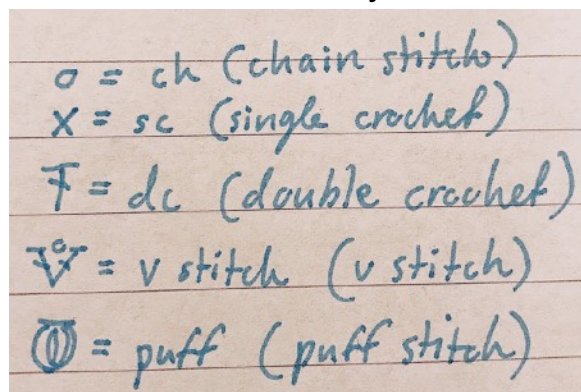 o = ch (chain stitch)
x = sc (single crochet)
= dc (double crochet)
= v stitch (v stitch)
= puff (puff stitch)